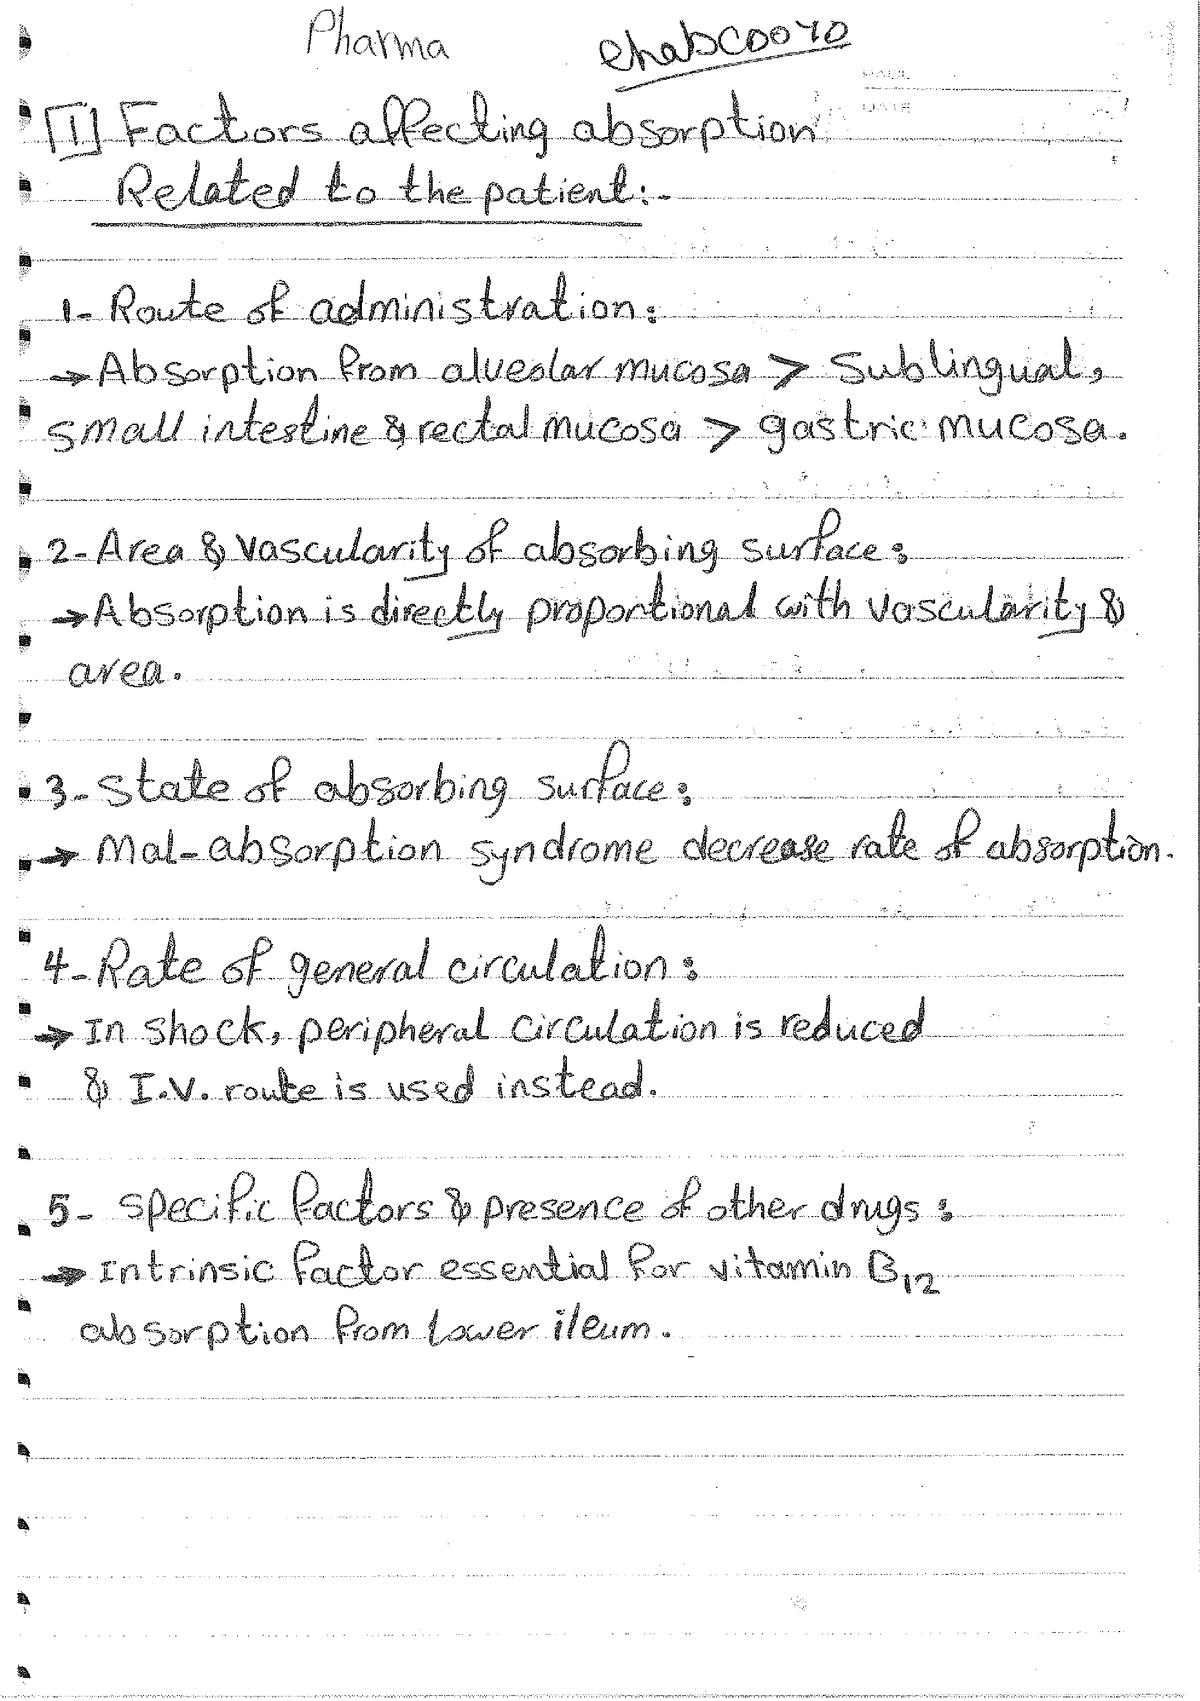 Pharma
[1] Factors affecting absorption
Related to the patient:-
1- Route of administration:
→ Absorption from alveolar mucosa > Sublingual,
small intestine & rectal mucosa > gastric mucosa.
2- Area & Vascularity of absorbing surface:
→ Absorption is directly proportional with vascularity &
area.
3- State of absorbing surface:
→ Mal-absorption syndrome decrease rate of absorption.
4- Rate of general circulation:
→ In shock, peripheral circulation is reduced
& I.V. route is used instead.
5- Specific factors & presence of other drugs:
→ Intrinsic factor essential for vitamin B12
absorption from lower ileum.